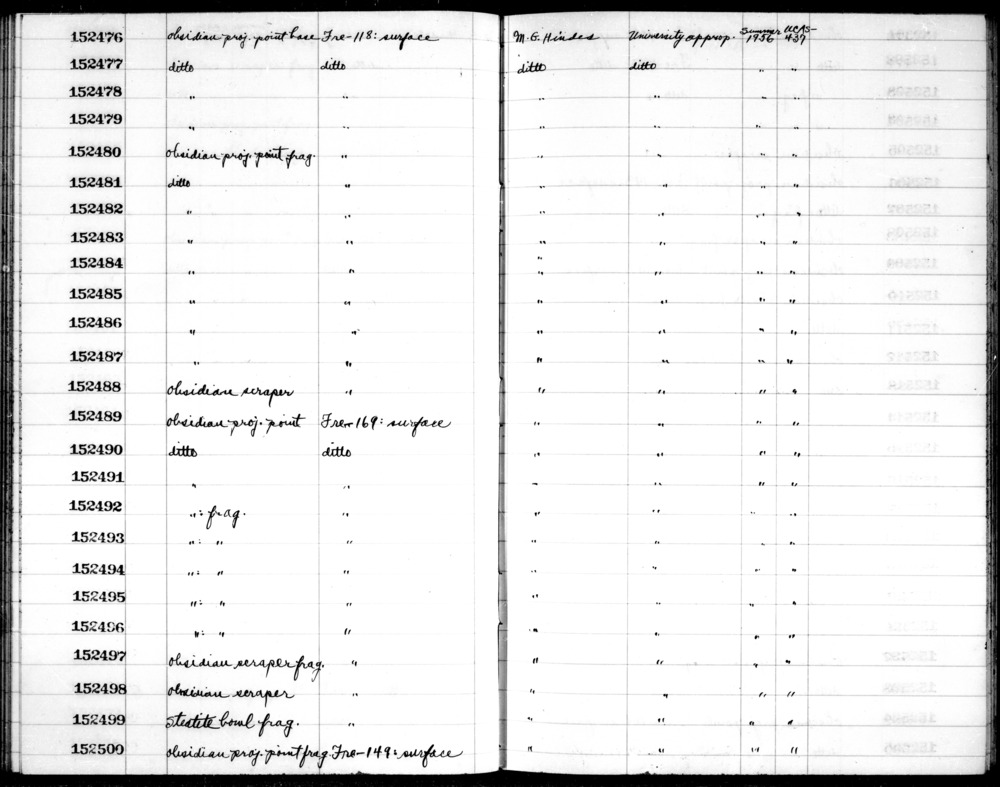 152476 obsidian proj. point base Fre-118: surface M. G. Hindes University approp. Summer 1956 UCAS-439
152477 ditto ditto ditto ditto " "
152478 " " " " " "
152479 " " " " " "
152480 obsidian proj. point frag. " " " " "
152481 ditto " " " " "
152482 " " " " " "
152483 " " " " " "
152484 " " " " " "
152485 " " " " " "
152486 " " " " " "
152487 " " " " " "
152488 obsidian scraper " " " " "
152489 obsidian proj. point Fre-169: surface " " " "
152490 ditto ditto " " " "
152491 " " " " " "
152492 ": frag. " " " " "
152493 ": " " " " " "
152494 ": " " " " " "
152495 ": " " " " " "
152496 ": " " " " " "
152497 obsidian scraper frag. " " " " "
152498 obsidian scraper " " " " "
152499 steatite bowl frag. " " " " "
152500 obsidian proj. point frag. Fre-149: surface " " " "